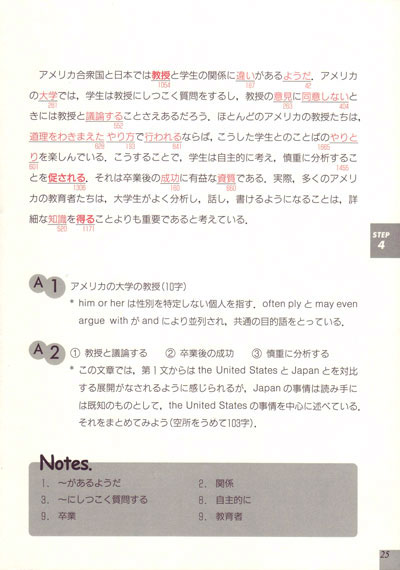 アメリカ合衆国と日本では教授と学生の関係に違いがあるようだ．アメリカ
1064 197 42
の大学では，学生は教授にしつこく質問をするし，教授の意見に同意しないと
261 253 404
きには教授と議論することさえあるだろう．ほとんどのアメリカの教授たちは，
552
道理をわきまえた やり方で行われるならば，こうした学生とのことばのやりと
629 193 841 1985
りを楽しんでいる．こうすることで，学生は自主的に考え，慎重に分析するこ
601 1455
とを促される．それは卒業後の成功に有益な資質である．実際，多くのアメリ
1306 160 650
カの教育者たちは，大学生がよく分析し，話し，書けるようになることは，詳
細な知識を得ることよりも重要であると考えている．
520 1171
STEP
4
A1 アメリカの大学の教授（10字）
* him or her は性別を特定しない個人を指す．often ply と may even
argue with が and により並列され，共通の目的語をとっている．
A2 ① 教授と議論する ② 卒業後の成功 ③ 慎重に分析する
* この文章では，第1文からは the United States と Japan とを対比
する展開がなされるように感じられるが，Japan の事情は読み手に
は既知のものとして，the United States の事情を中心に述べている．
それをまとめてみよう（空所をうめて103字）．
Notes.
1． 〜があるようだ 2． 関係
3． 〜にしつこく質問する 8． 自主的に
9． 卒業 9． 教育者
25